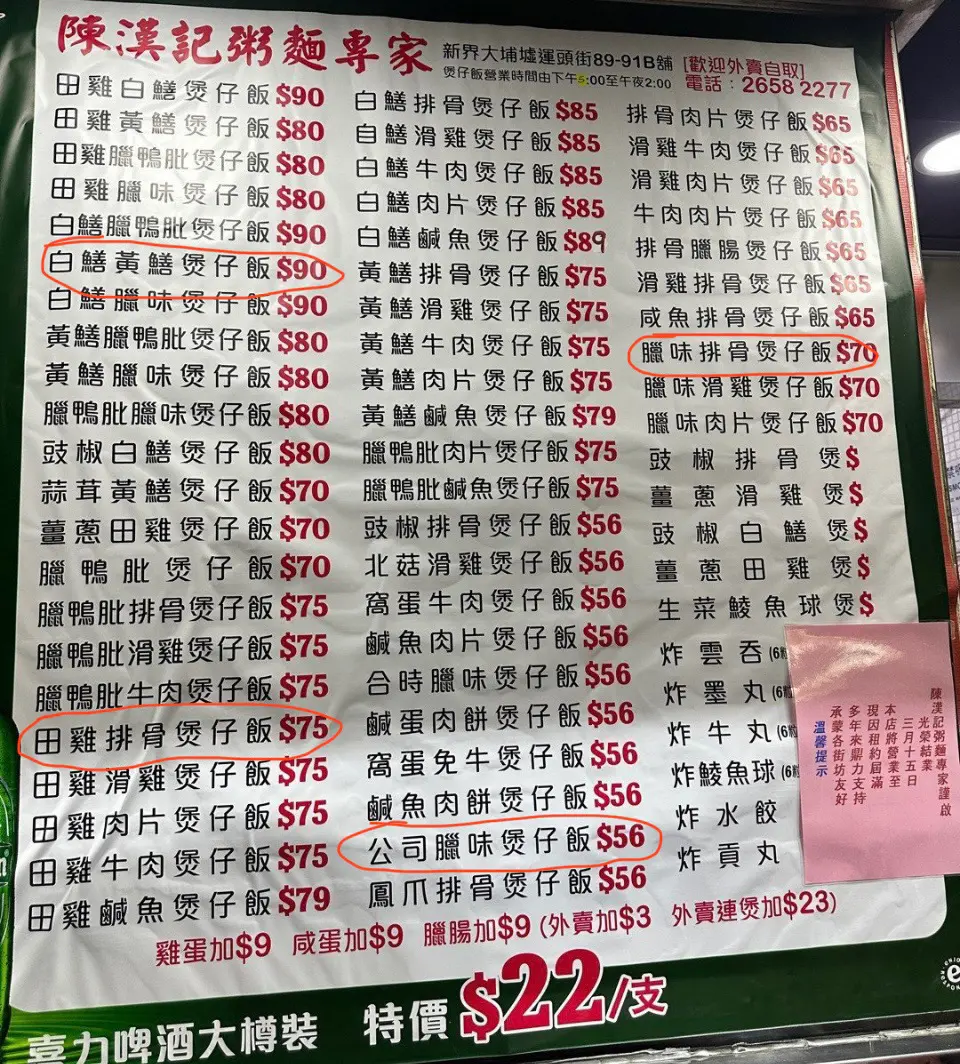 陳漢記粥麵專家
新界大埔墟運頭街89-91B舖
煲仔飯營業時間由下午5:00至午夜2:00
[歡迎外賣自取]
電話：2658 2277
田雞白鱔煲仔飯$90
田雞黃鱔煲仔飯$80
田雞臘鴨肶煲仔飯$80
田雞臘味煲仔飯$80
白鱔臘鴨肶煲仔飯$90
白鱔黃鱔煲仔飯$90
白鱔臘味煲仔飯$90
黃鱔臘鴨肶煲仔飯$80
黃鱔臘味煲仔飯$80
臘鴨肶臘味煲仔飯$80
豉椒白鱔煲仔飯$80
蒜茸黃鱔煲仔飯$70
薑蔥田雞煲仔飯$70
臘鴨肶煲仔飯$70
臘鴨肶排骨煲仔飯$75
臘鴨肶滑雞煲仔飯$75
臘鴨肶牛肉煲仔飯$75
田雞排骨煲仔飯$75
田雞滑雞煲仔飯$75
田雞肉片煲仔飯$75
田雞牛肉煲仔飯$75
田雞鹹魚煲仔飯$79
白鱔排骨煲仔飯$85
白鱔滑雞煲仔飯$85
白鱔牛肉煲仔飯$85
白鱔肉片煲仔飯$85
白鱔鹹魚煲仔飯$89
黃鱔排骨煲仔飯$75
黃鱔滑雞煲仔飯$75
黃鱔牛肉煲仔飯$75
黃鱔肉片煲仔飯$75
黃鱔鹹魚煲仔飯$79
臘鴨肶肉片煲仔飯$75
臘鴨肶鹹魚煲仔飯$75
豉椒排骨煲仔飯$56
北菇滑雞煲仔飯$56
窩蛋牛肉煲仔飯$56
鹹魚肉片煲仔飯$56
合時臘味煲仔飯$56
鹹蛋肉餅煲仔飯$56
窩蛋免牛煲仔飯$56
鹹魚肉餅煲仔飯$56
公司臘味煲仔飯$56
鳳爪排骨煲仔飯$56
排骨肉片煲仔飯$65
滑雞牛肉煲仔飯$65
滑雞肉片煲仔飯$65
牛肉肉片煲仔飯$65
排骨臘腸煲仔飯$65
滑雞臘腸煲仔飯$65
咸魚排骨煲仔飯$65
臘味排骨煲仔飯$70
臘味滑雞煲仔飯$70
臘味肉片煲仔飯$70
豉椒排骨煲$
薑蔥滑雞煲$
豉椒白鱔煲$
薑蔥田雞煲$
生菜鯪魚球煲$
炸雲吞(6粒
炸墨丸(6粒
炸牛丸(6粒
炸鯪魚球(6粒
炸水餃
炸貢丸
溫馨提示
承蒙各街坊友好
多年來鼎力支持
現因租約屆滿
本店將營業至
三月十五日
光榮結業
陳漢記粥麵專家謹啟
雞蛋加$9 咸蛋加$9 臘腸加$9 (外賣加$3 外賣連煲加$23)
喜力啤酒大樽裝 特價$22/支